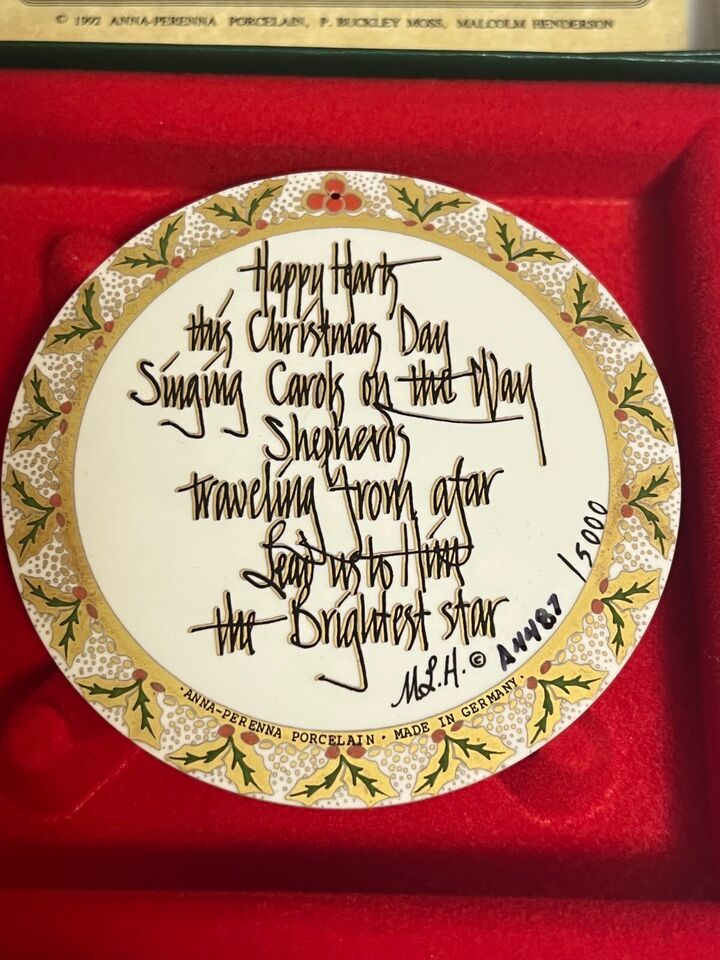 © 1992 ANNA-PERENNA PORCELAIN, P. BUCKLEY MOSS, MALCOLM HENDERSON
Happy Harts
this Christmas Day
Singing Carols on the Way
Shepherds
traveling from afar
Lead us to Him
the Brightest star
M.L.H. © A4487 /5000
·ANNA-PERENNA PORCELAIN · MADE IN GERMANY·